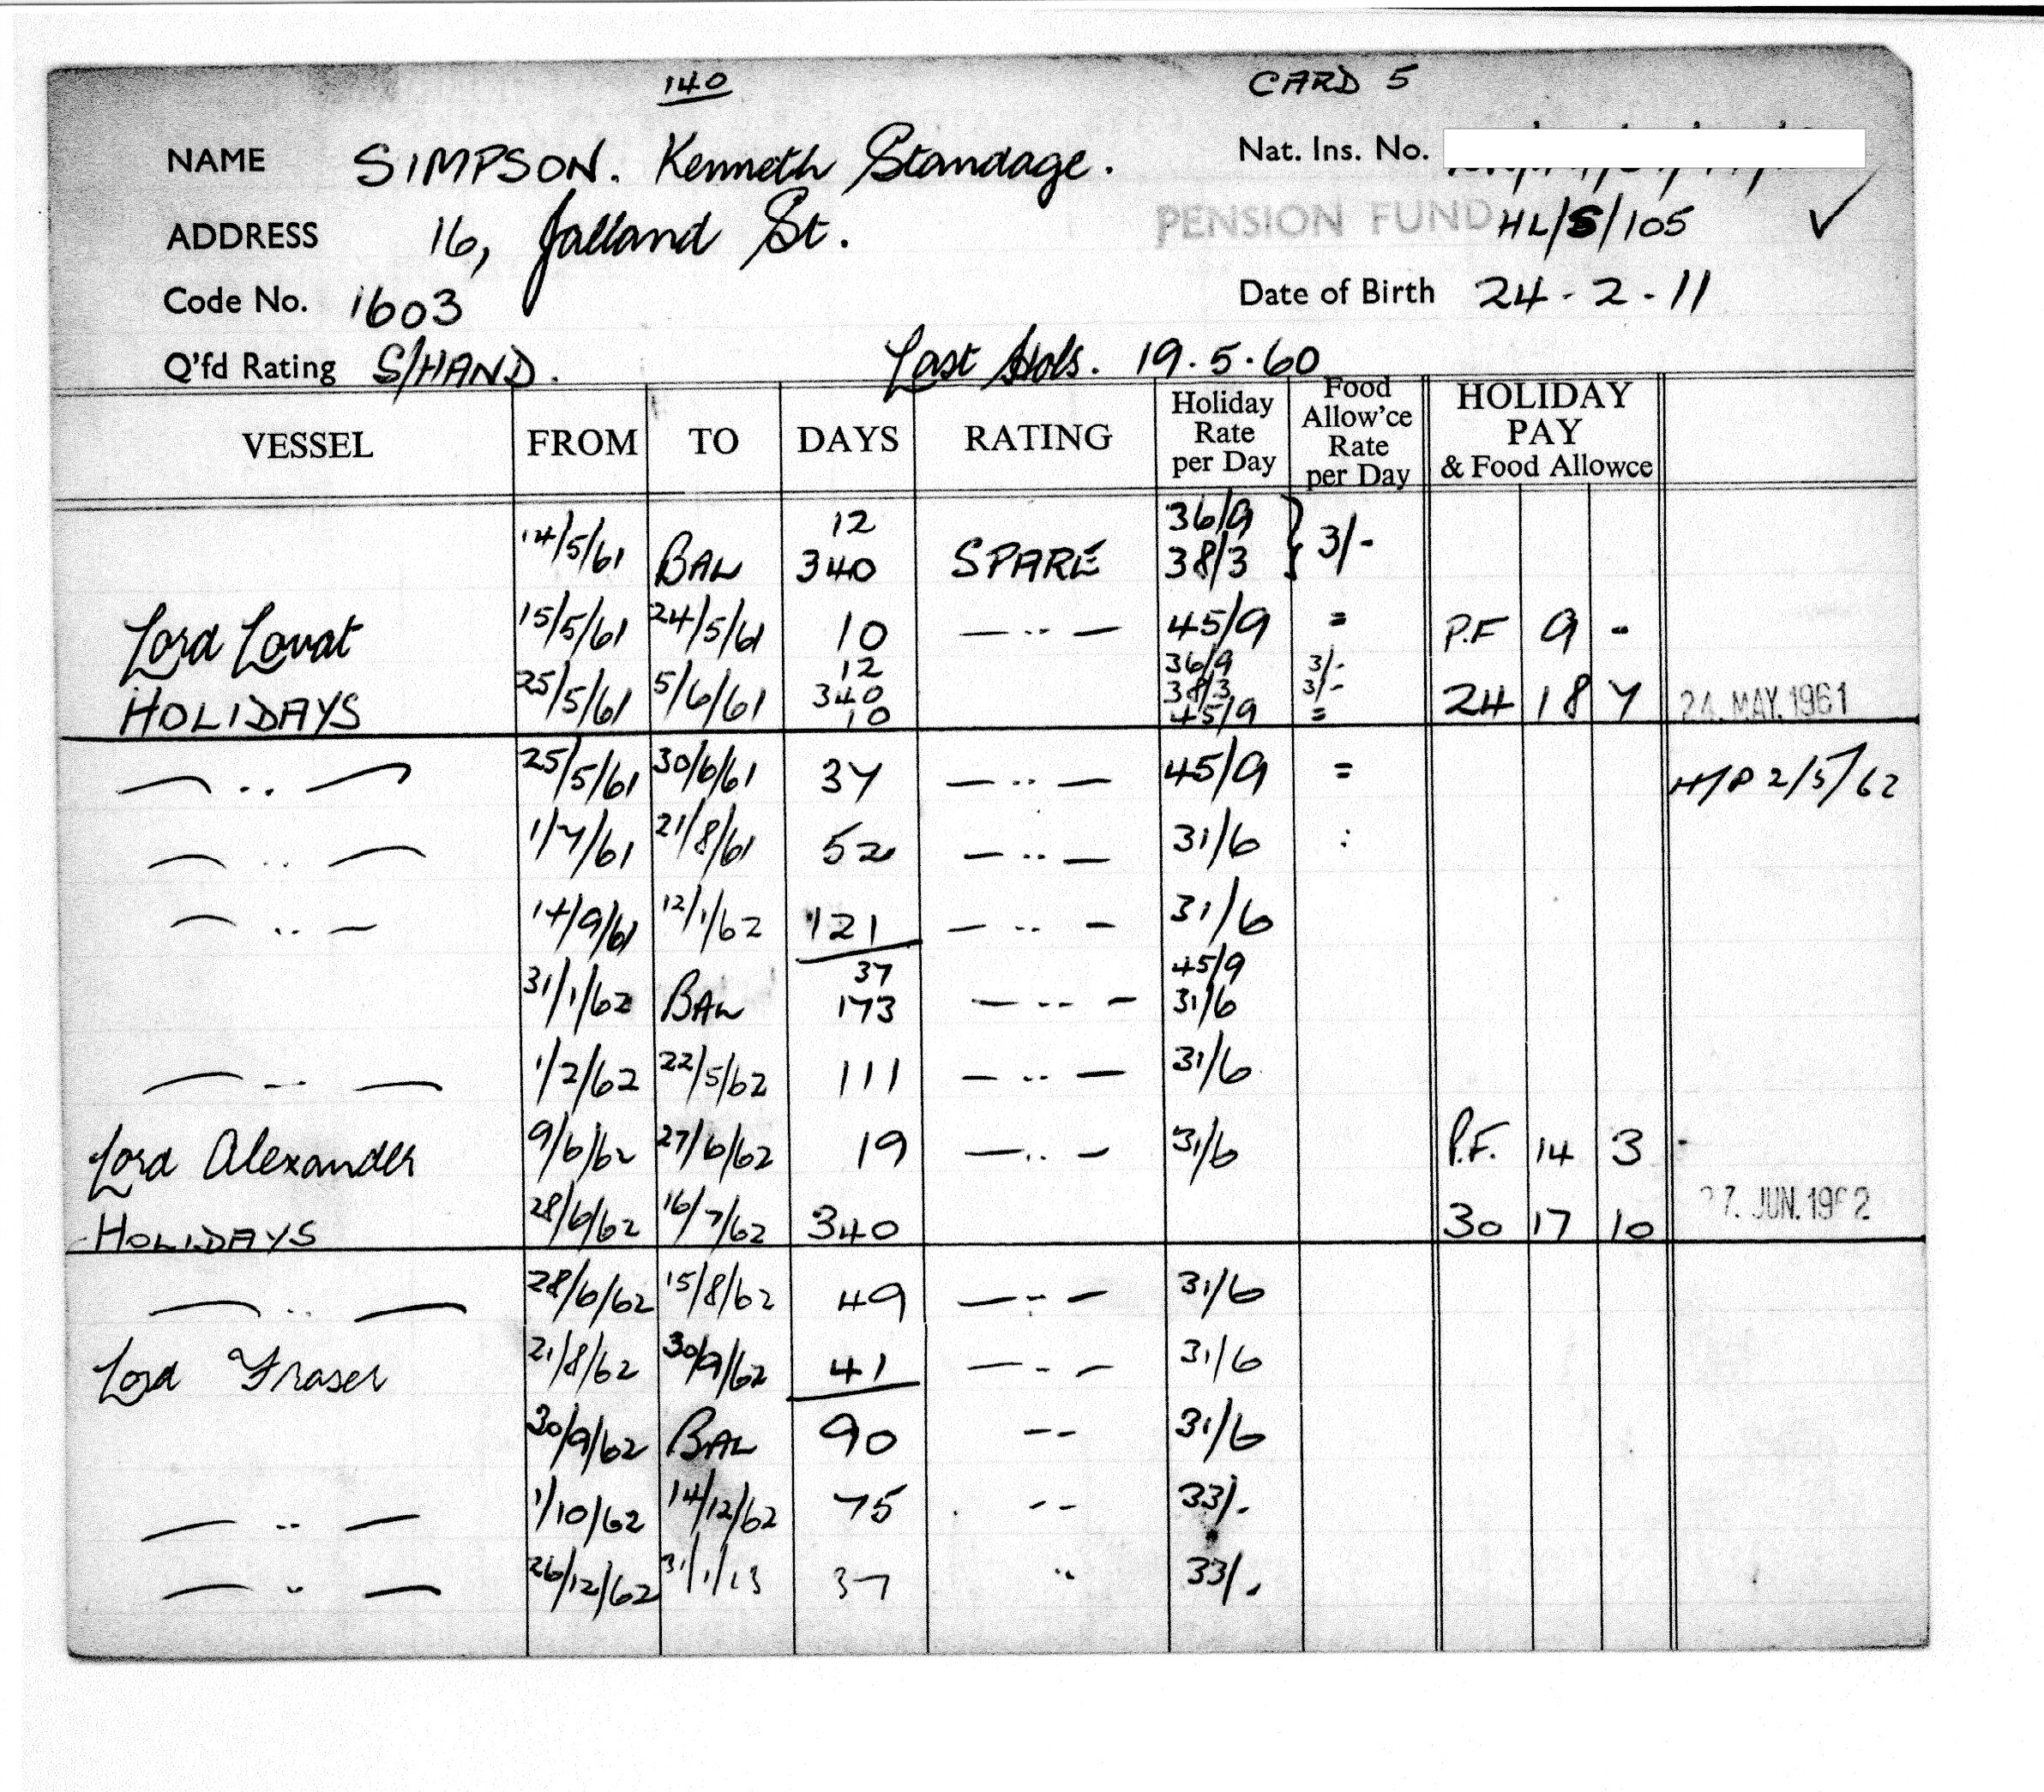 140 CARD 5
NAME SIMPSON. Kenneth Standage. Nat. Ins. No.
ADDRESS 16, Jalland St. PENSION FUND HL/S/105 ✓
Code No. 1603 Date of Birth 24-2-11
Q'fd Rating S/HAND. Last Hols. 19.5.60
VESSEL FROM TO DAYS RATING Holiday Rate per Day Food Allow'ce Rate per Day HOLIDAY PAY & Food Allowce
12 36/9
14/5/61 BAL 340 SPARE 38/3 } 3/-
Lord Lovat 15/5/61 24/5/61 10 — ·· — 45/9 = P.F 9 -
12 36/9 3/-
HOLIDAYS 25/5/61 5/6/61 340 38/3 3/- 24 18 7 24. MAY. 1961
10 45/9 =
— ·· — 25/5/61 30/6/61 37 — ·· — 45/9 = H/P 2/5/62
— ·· — 1/7/61 21/8/61 52 — ·· — 31/6 :
— ·· — 14/9/61 12/1/62 121 — ·· — 31/6
37 45/9
31/1/62 BAL 173 — ·· — 31/6
— ·· — 1/2/62 22/5/62 111 — ·· — 31/6
Lord Alexander 9/6/62 27/6/62 19 — ·· — 31/6 P.F. 14 3 -
HOLIDAYS 28/6/62 16/7/62 340 30 17 10 27. JUN. 1962
— ·· — 28/6/62 15/8/62 49 — ·· — 31/6
Lord Fraser 21/8/62 30/9/62 41 — ·· — 31/6
30/9/62 BAL 90 -- 31/6
— ·· — 1/10/62 14/12/62 75 -- 33/-
— ·· — 26/12/62 31/1/63 37 ·· 33/-